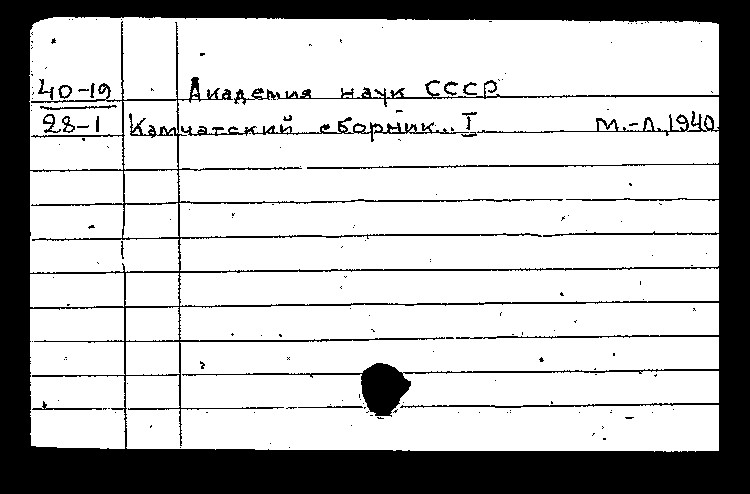 40-19 Академия наук СССР
28-1 Камчатский сборник.. I м.-л.,1940